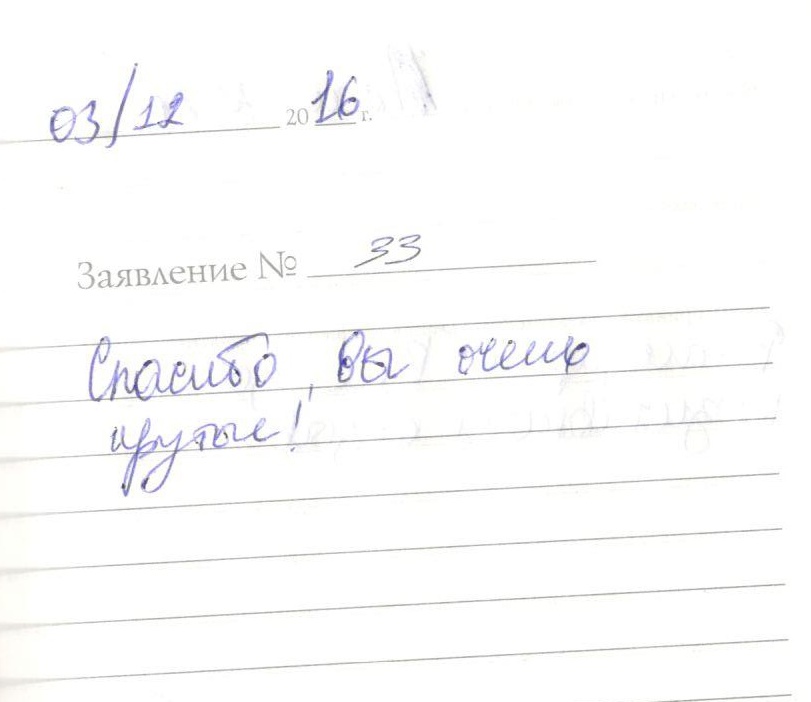 03/12 2016 г.
Заявление № 33
Спасибо, вы очень
крутые!